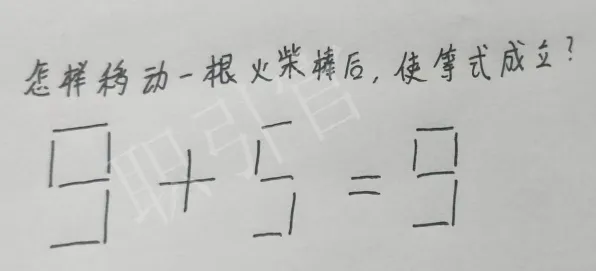 怎样移动一根火柴棒后，使等式成立？
职引官
9+5=9